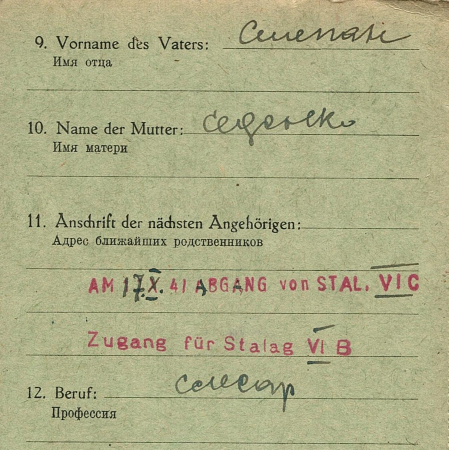 9. Vorname des Vaters:
Имя отца
10. Name der Mutter: Седолко
Имя матери
11. Anschrift der nächsten Angehörigen:
Адрес ближайших родственников
AM 17.X.41 ABGANG von STAL. VI C
Zugang für Stalag VI B
12. Beruf: слесар
Профессия